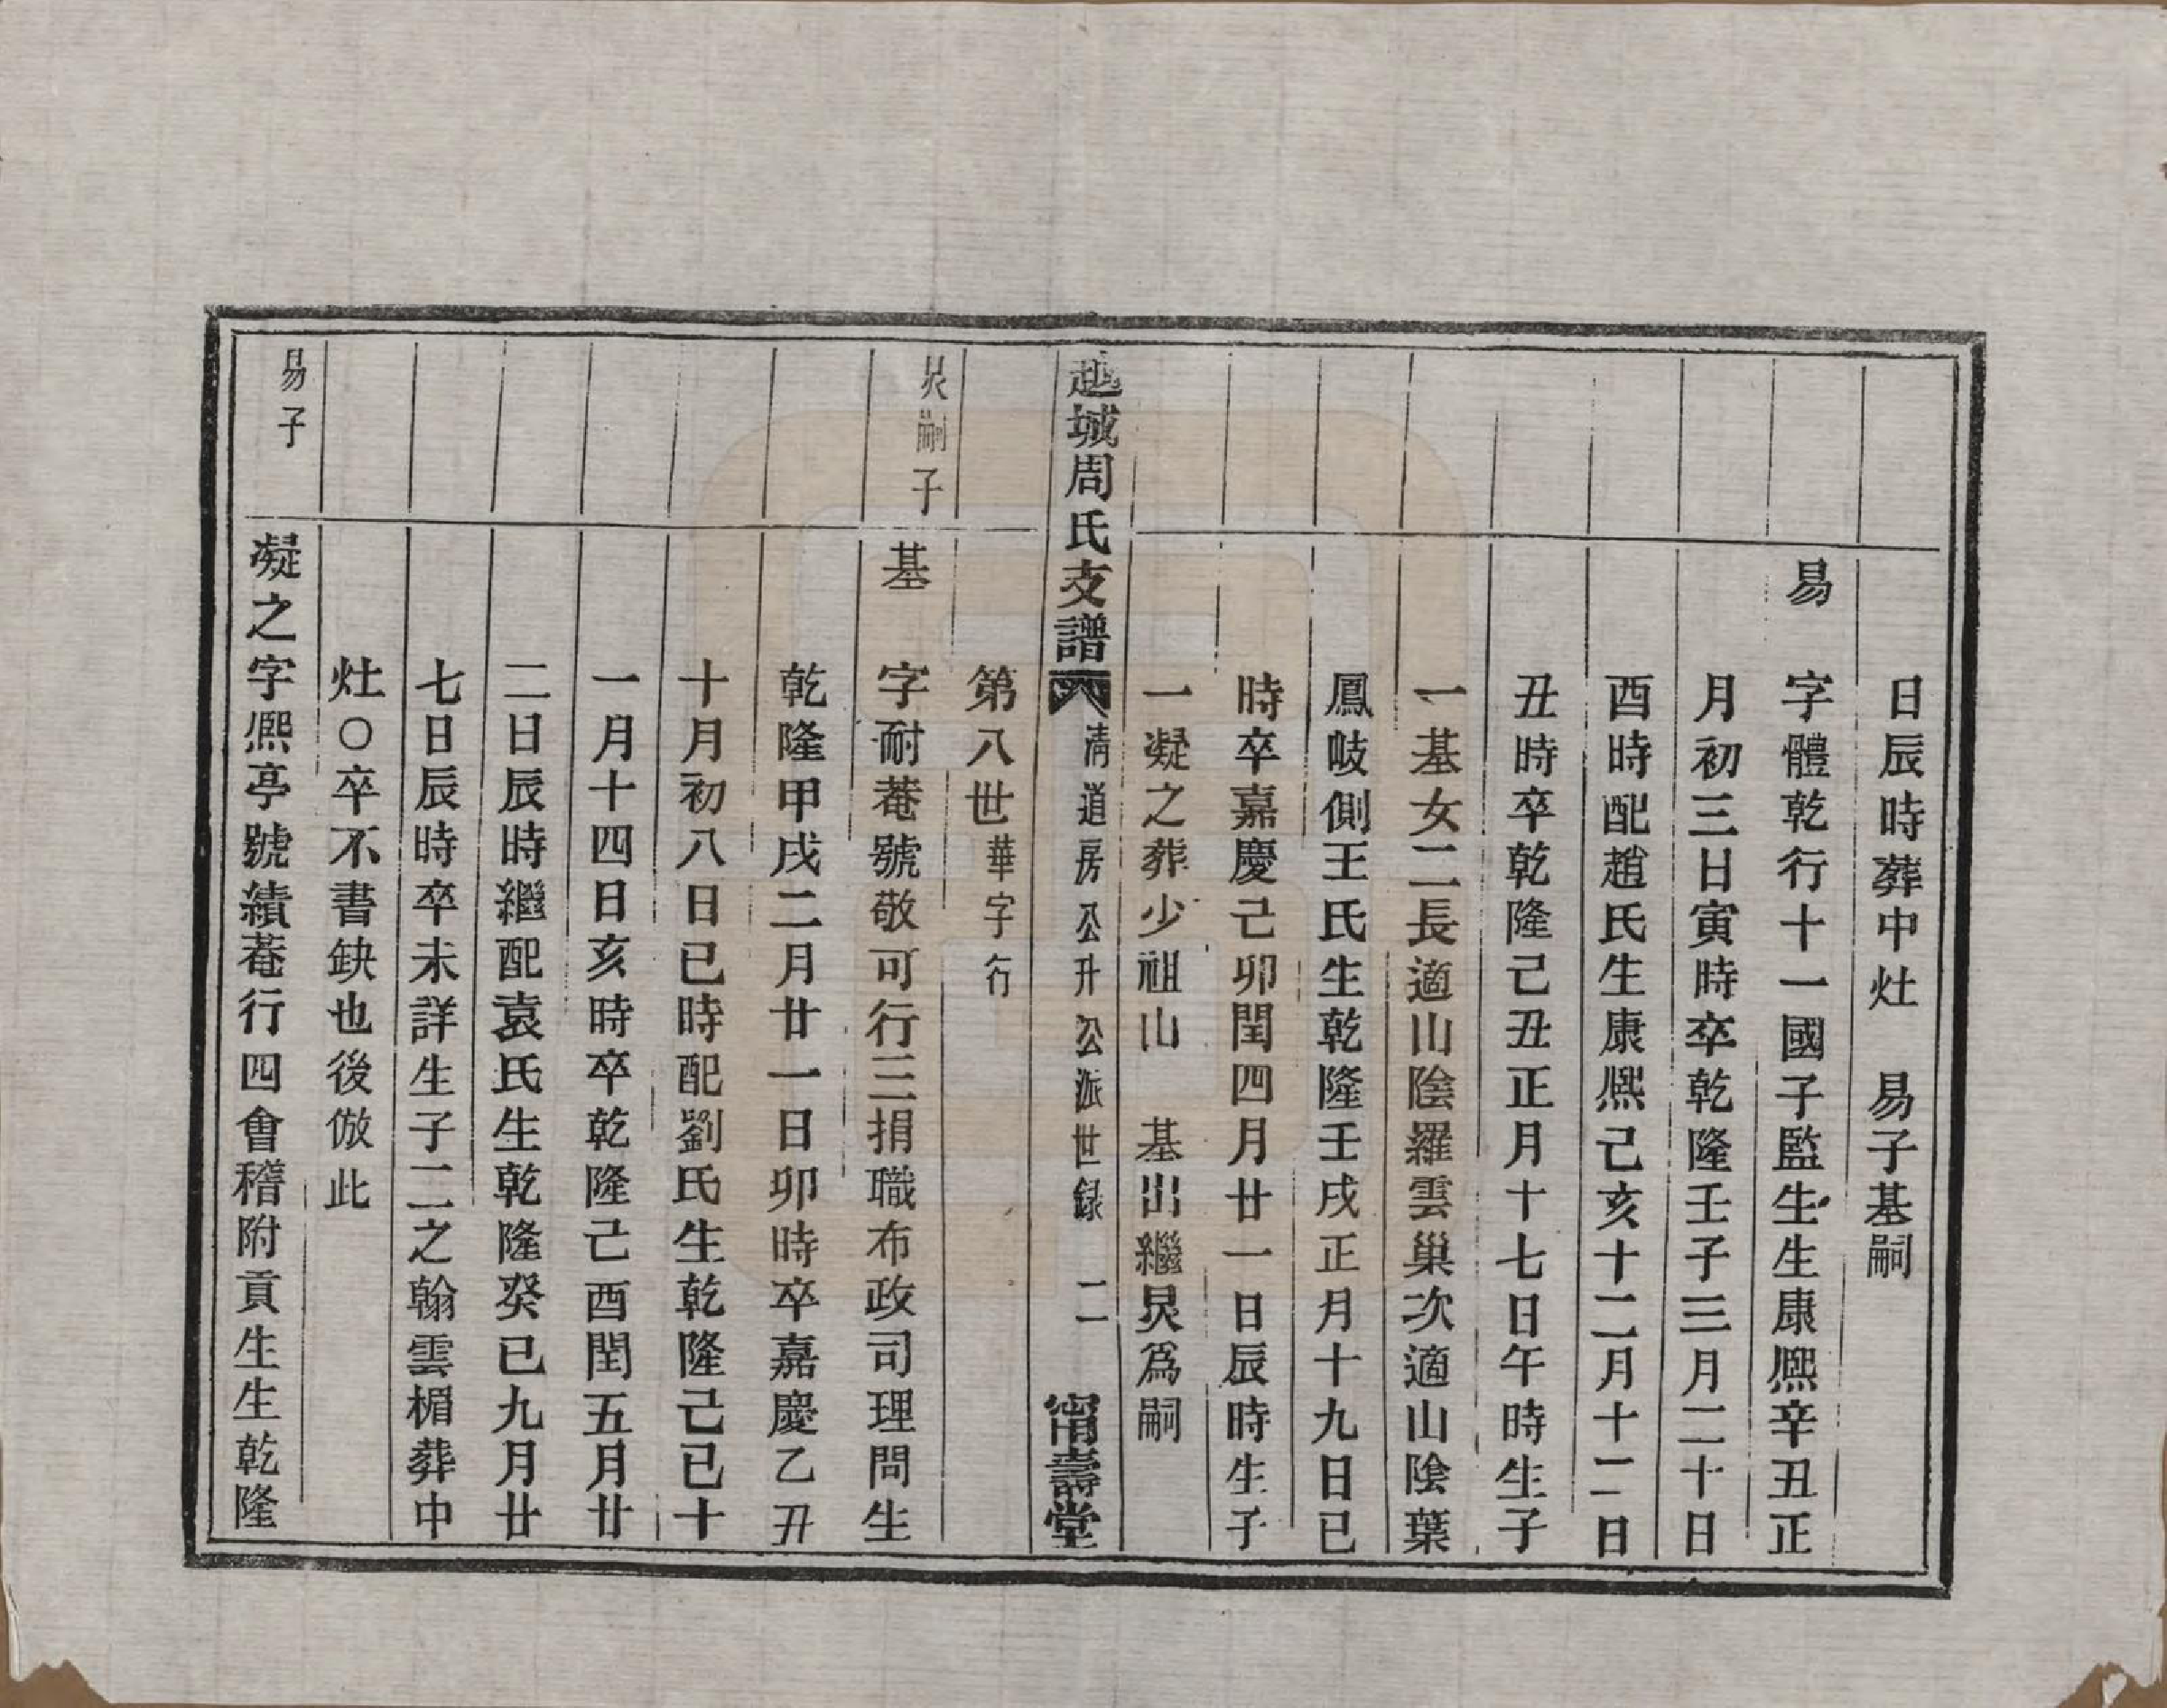 日辰時葬中灶　易子基嗣
易　字體乾行十一國子監生生康熙辛丑正
月初三日寅時卒乾隆壬子三月二十日
酉時配趙氏生康熙己亥十二月十二日
丑時卒乾隆己丑正月十七日午時生子
一基女二長適山陰羅雲巢次適山陰葉
鳳岐側王氏生乾隆壬戌正月十九日巳
時卒嘉慶己卯閏四月廿一日辰時生子
一凝之葬少祖山　基出繼炅爲嗣
越城周氏支譜　清道房公升公派世錄　二　甯壽堂
第八世華字行
炅嗣子　基　字耐菴號敬可行三捐職布政司理問生
乾隆甲戌二月廿一日卯時卒嘉慶乙丑
十月初八日巳時配劉氏生乾隆己巳十
一月十四日亥時卒乾隆己酉閏五月廿
二日辰時繼配袁氏生乾隆癸巳九月廿
七日辰時卒未詳生子二之翰雲楣葬中
灶○卒不書缺也後倣此
易子　凝之字熙亭號績菴行四會稽附貢生生乾隆